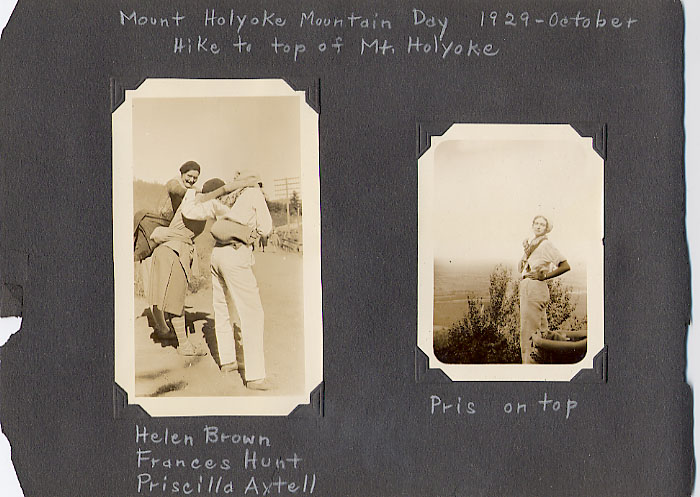 Mount Holyoke Mountain Day 1929-October
Hike to top of Mt. Holyoke
Helen Brown
Frances Hunt
Priscilla Axtell
Pris on top